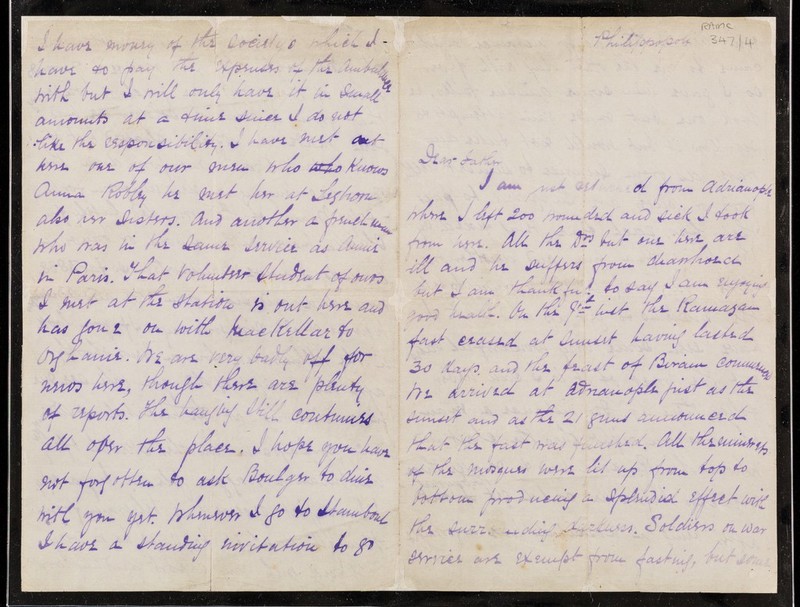 I have money of the Society's which I
have to pay the expenses of the Ambulance
with but I will only have it in small
amounts at a time since I do not
like the responsibility. I have met out
here one of our men who who knows
Anna Robley he met her at Leghorn
also her Sisters. And another a frenchman
who was in the same service as Annie
in Paris. That Volunteer Student of ours
I met at the station is out here and
has gone on with MacKellar to
Orghanie. We are very badly off for
news here, though there are plenty
of reports. The hanging still continues
all over the place. I hope you have
not forgotten to ask Boulger to dine
with you yet. Whenever I go to Stamboul
I have a standing invitation to go
RAMC
347/4
Philippopoli
Dear Father
I am just d from Adrianople
where I left 200 wounded and sick I took
from here. All the Drs but one here are
ill and he suffers from diarrhoea
but I am thankful to say I am enjoying
good health. On the 8th inst the Ramazan
fast ceased at sunset having lasted
30 days and the feast of Biram commenced
We arrived at Adrianople just as the
sunset and as the 21 guns announced
that the fast was finished. All the minarets
of the mosques were lit up from top to
bottom producing a splendid effect with
the surrounding darkness. Soldiers on war
service are exempt from fasting, but some